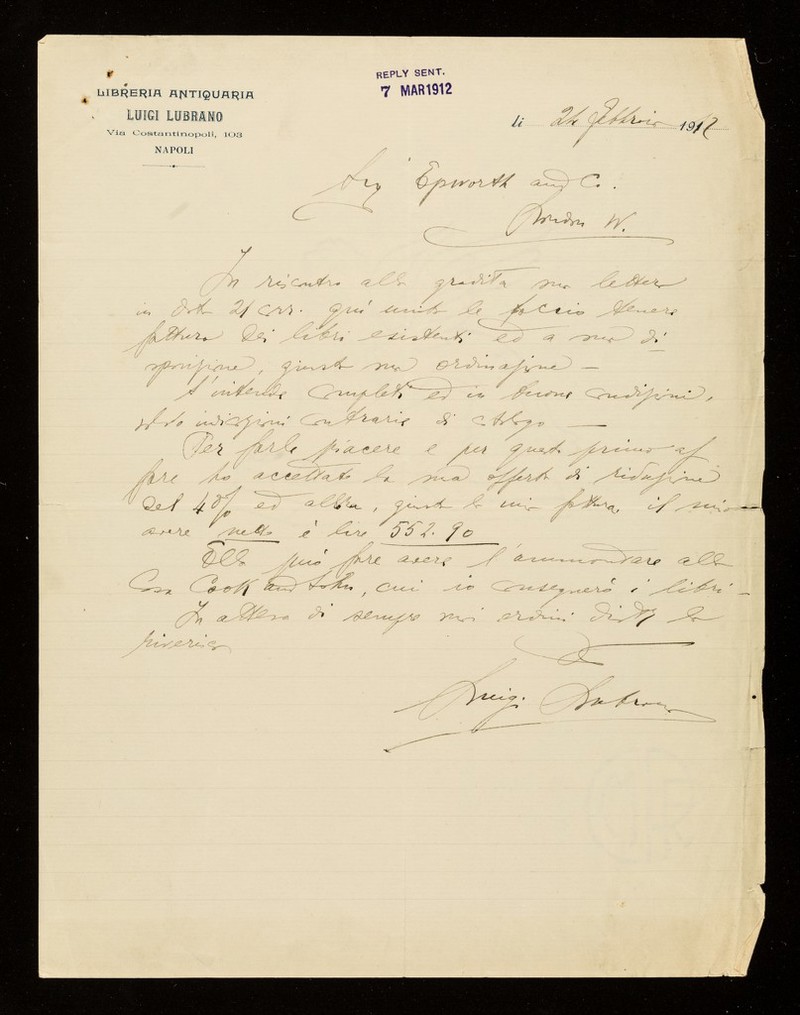 LIBRERIA ANTIQUARIA
LUIGI LUBRANO
Via Costantinopoli, 103
NAPOLI
REPLY SENT.
7 MAR 1912
li 24 Febbraio 1912
Sig Epworth and Co.
London W.
In riscontro alla gradita sua lettera
in data 21 corr. qui unita le faccio tenere
fattura dei libri esistenti ed a sua di
sposizione, giusta sua ordinazione —
S'intende completi ed in buone condizioni,
salvo indicazioni contrarie di catalogo —
Per farle piacere e per questo primo af
fare ho accettato la sua offerta di riduzione
del 40% ed altra, giusta la mia fattura, il mio
avere netto è lire 552.90
Ella può fare avere l'ammontare alla
Casa Cook and Sohn, cui io consegnerò i libri —
In attesa di sempre suoi ordini la
riverisco
Luigi Lubrano